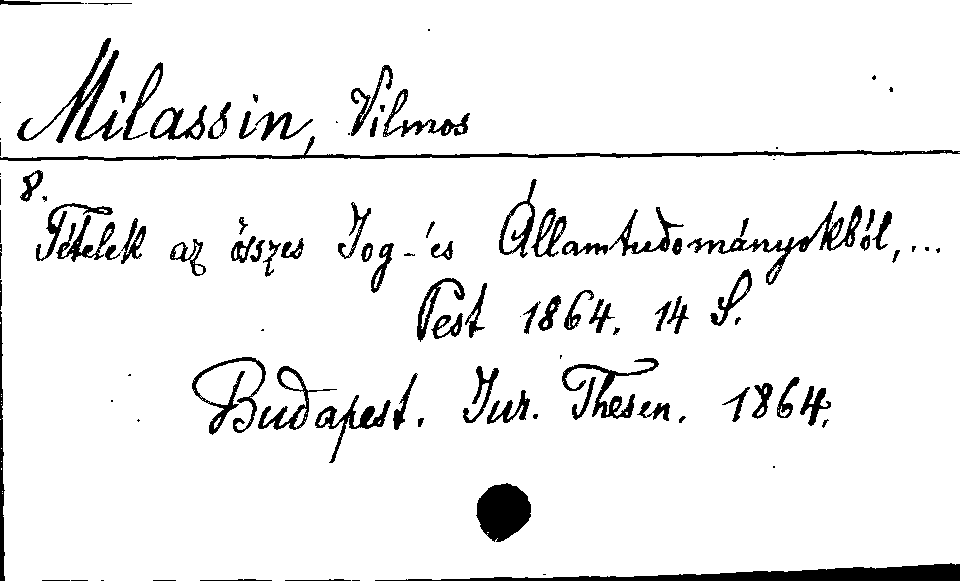 Milassin, Vilmos
8.
Tételek az összes Jog- és Államtudományokból,...
Pest 1864. 14 S.
Budapest. Jur. Thesen. 1864.